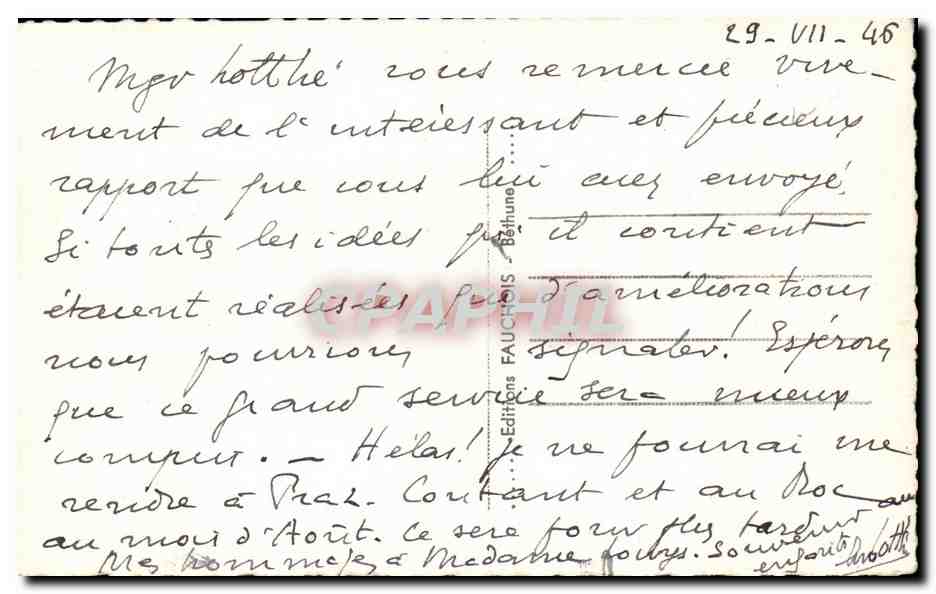 29-VII-46
Mgr vous remercie vive-
ment de l'intéressant et précieux
rapport que vous lui avez envoyé.
Si toutes les idées qu'il contient
étaient réalisées que d'améliorations
nous pourrions signaler! Espérons
que ce grand service sera mieux
compris. - Hélas! je ne pourrai me
rendre à Praz-Coutant et au Roc
au mois d'Août. Ce sera pour plus tard
Mes hommages à Madame. Souvent
Editions FAUCHOIS - Béthune
CPAPHIL